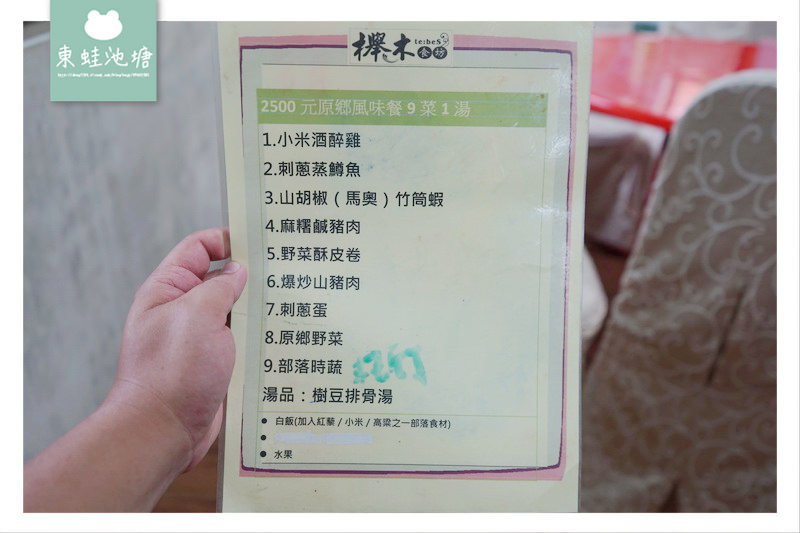 東蛙池塘
櫸木
te:beS
食坊
2500 元原鄉風味餐 9 菜 1 湯
1.小米酒醉雞
2.刺蔥蒸鱒魚
3.山胡椒（馬奧）竹筒蝦
4.麻糬鹹豬肉
5.野菜酥皮卷
6.爆炒山豬肉
7.刺蔥蛋
8.原鄉野菜
9.部落時蔬
湯品：樹豆排骨湯
● 白飯(加入紅藜／小米／高粱之一部落食材)
●
● 水果